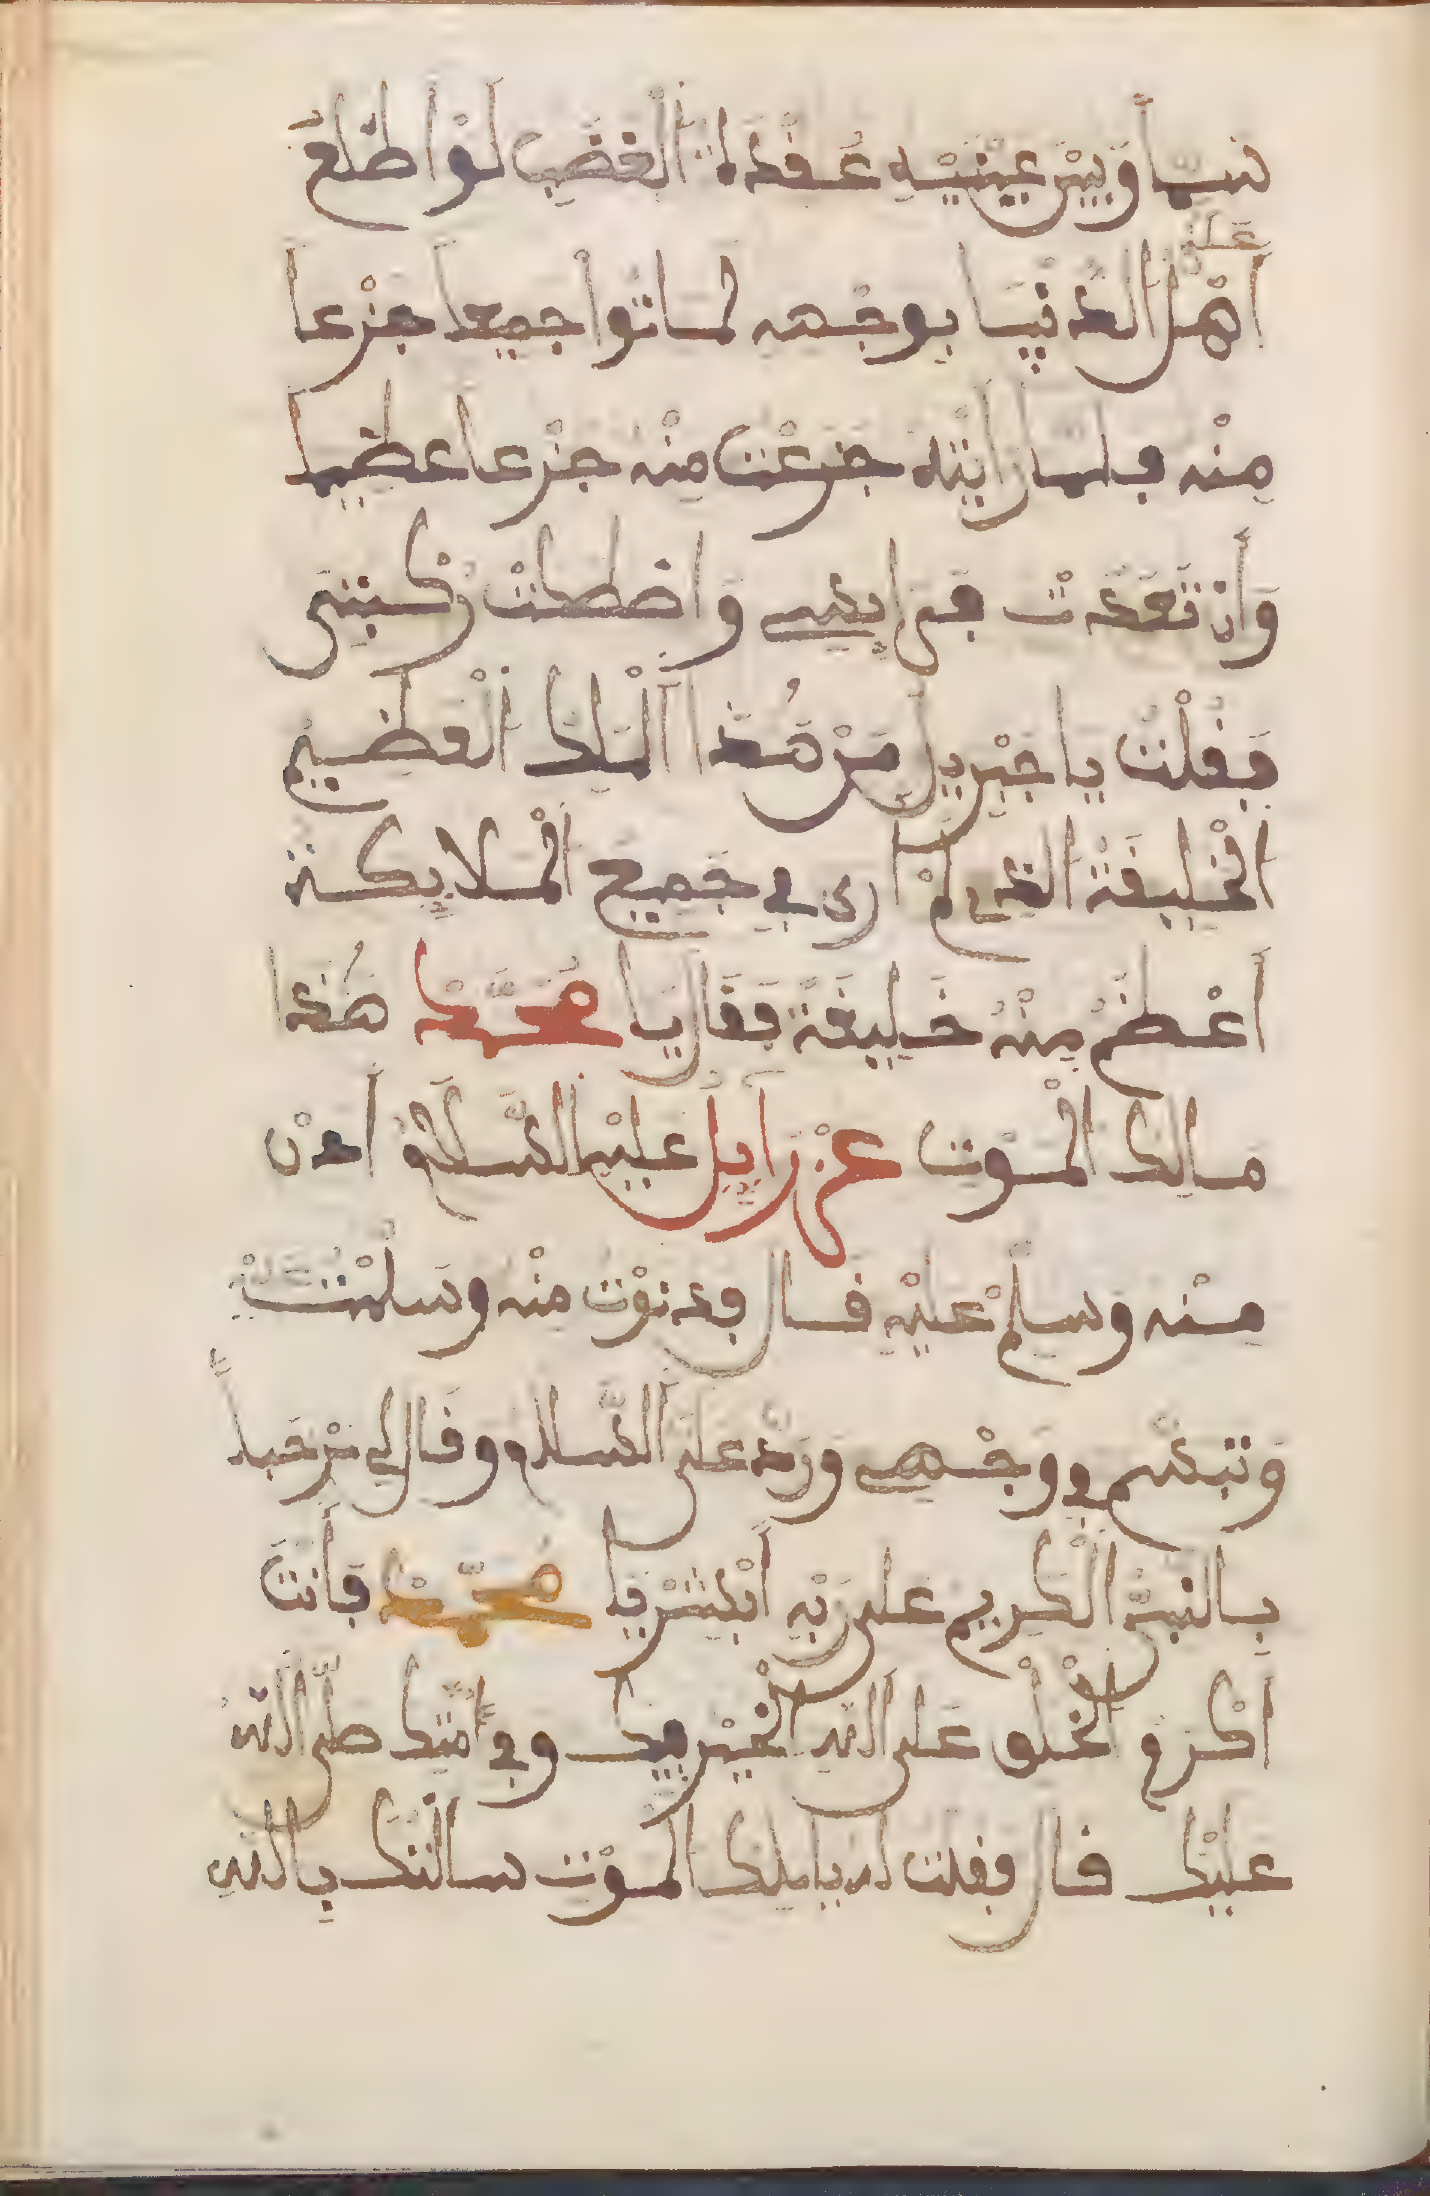 شيأ وبين عينيه عقدة من الغضب لو اطلع
على
أهل الدنيا بوجهه لماتوا جميعا جزعا
منه فلما رأيته جزعت منه جزعا عظيما
وارتعدت فرايصي واضطكت ركبتي
فقلت يا جبريل من هذا الملك العظيم
الخليفة الذي لم أرى في جميع الملايكة
أعظم منه خليفة فقال يا محمد هذا
مالك الموت عزرايل عليه السلام أدن
منه وسلم عليه قال فدنوت منه وسلمت عليه
وتبسم في وجهي ورد علي السلام وقال لي مرحبا
بالنبي الكريم على ربه أبشر يا محمد فأنت
أكرم الخلق على الله الخير فيك وفي امتك صلى الله
عليك قال فقلت له يا ملك الموت سالتك بالله